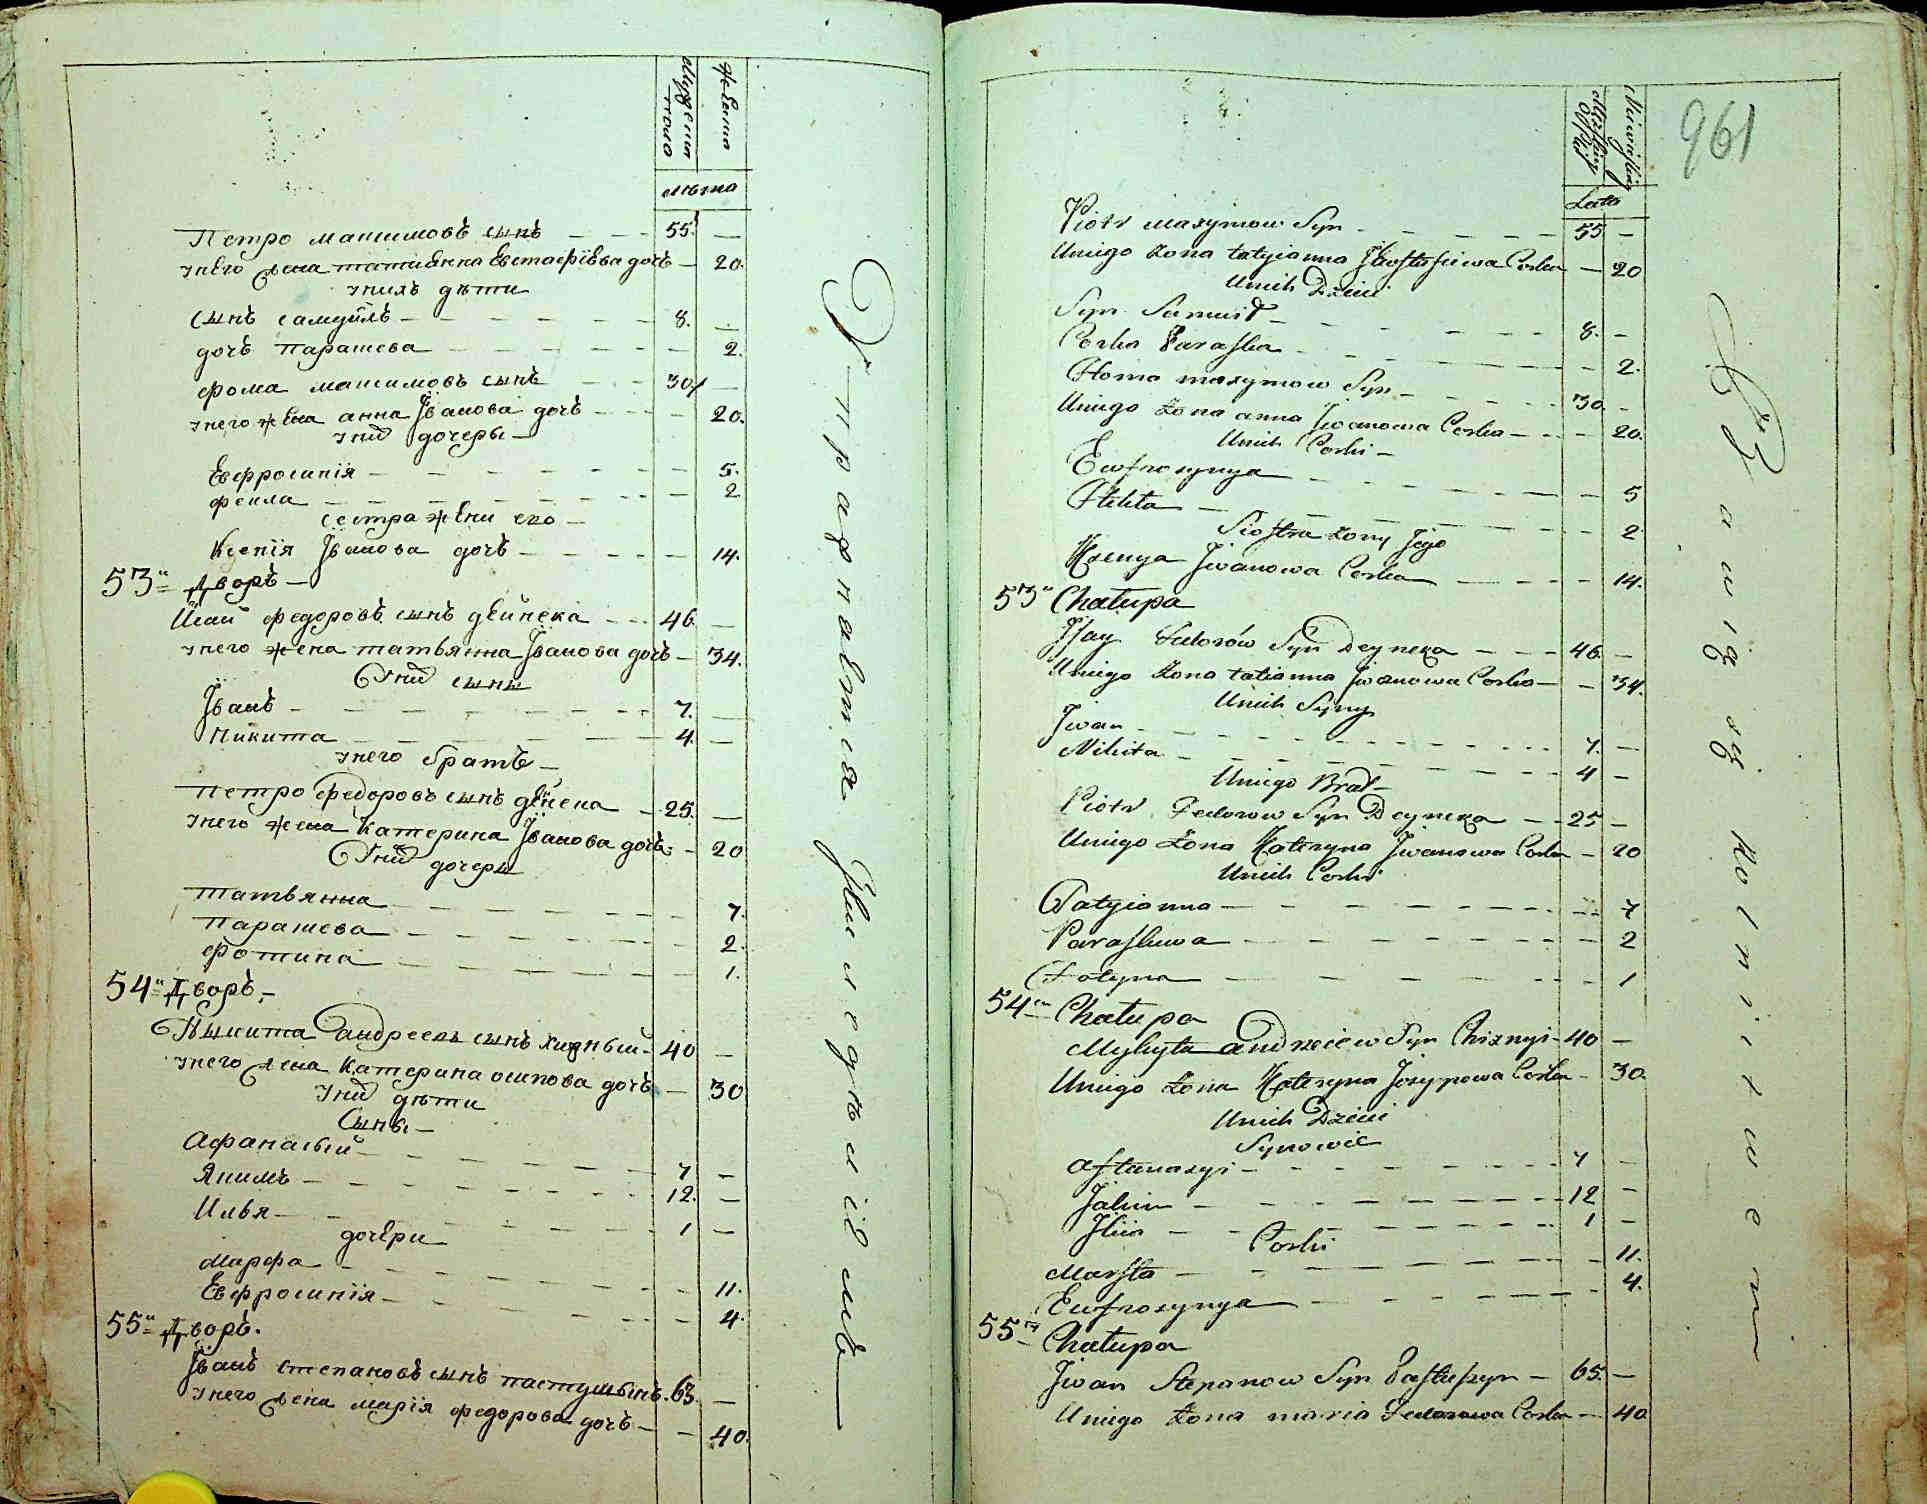 мужеска
пола
женска
лѣта
Петро максимовъ сынъ — — 55. —
унего жена татиѣнна Евстафіѣва дочъ — 20.
унихъ дѣти
Сынъ самуйлъ — — — — — 8. —
дочъ Парасцева — — — — — 2.
фома максимовъ сынъ — — 30 —
унего жена анна Іванова дочъ — — 20.
унихъ дочеры —
Евфросинія — — — — — 5.
фекла — — — — — 2
сестра жѣни его —
Ксенія Іванова дочъ — — — — 14.
53й Дворъ —
Ісай федоровъ сынъ дейнека — — 46 —
унего жена татьянна Іванова дочъ — 34.
Унихъ сыны
Іванъ — — — — — 7. —
Никита — — — — — 4. —
унего братъ —
Петро федоровъ сынъ дейнека — 25. —
унего жена Катерина Іванова дочъ — 20
Унихъ дочеры
Татьянна — — — — — 7.
Парасцева — — — — — 2.
фотина — — — — — 1.
54й Дворъ. —
Мыкита андреевъ сынъ хижный — 40 —
унего жена Катерина осипова дочъ — 30
унихъ дѣти
Сыны —
Афанасый — — — — 7 —
Якимъ — — — — 12. —
Илья — — — — 1 —
дочѣри
марфа — — — — 11.
Евфросинія — — — — 4.
55й Дворъ.
Іванъ степановъ сынъ пастушынъ. 63. —
унего жена марія федорова дочъ — — 40.
961
Męzkiey
Płci
Niewieskiey
Lata
Piotr maxymow Syn — — — — 55 —
Uniego żona tatyianna Jewstafiewa Corka — 20
Unich Dzieci
Syn Samuił — — — — 8. —
Corka Paraska — — — — 2.
Homa maxymow Syn — — — 30. —
Uniego żona anna Jwanowa Corka — — 20.
Unich Corki —
Eufrosynya — — — — 5
Thekla — — — — 2
Siostra żony Jego
Xsenya Jwanowa Corka — — — 14.
53a Chałupa
Jsay Fedorów Syn Deyneka — — — 46. —
Uniego żona tatianna Jwanowa Corka — — 34.
Unich Syny
Jwan — — — — — 7. —
Nikita — — — — — 4 —
Uniego Brat —
Piotr Fedorow Syn Deyneka — — 25 —
Uniego żona Kateryna Jwanowa Corka — 20
Unich Corki
Tatyianna — — — — — 7
Paraskiewa — — — — — 2
Fotyna — — — — — 1
54ta Chałupa
Mykyta andrzeiew Syn Chiznyi — 40 —
Uniego żona Kateryna Jozypowa Corka — 30.
Unich Dzieci
Synowie
aftanasyi — — — — 7 —
Jakim — — — — 12 —
Jliia — — — — 1 —
Corki
Marfta — — — — 11.
Eufrosynya — — — — 4.
55ta Chałupa
Jwan Stepanow Syn Pastuszyn — 65. —
Uniego żona maria Fedorowa Corka — 40